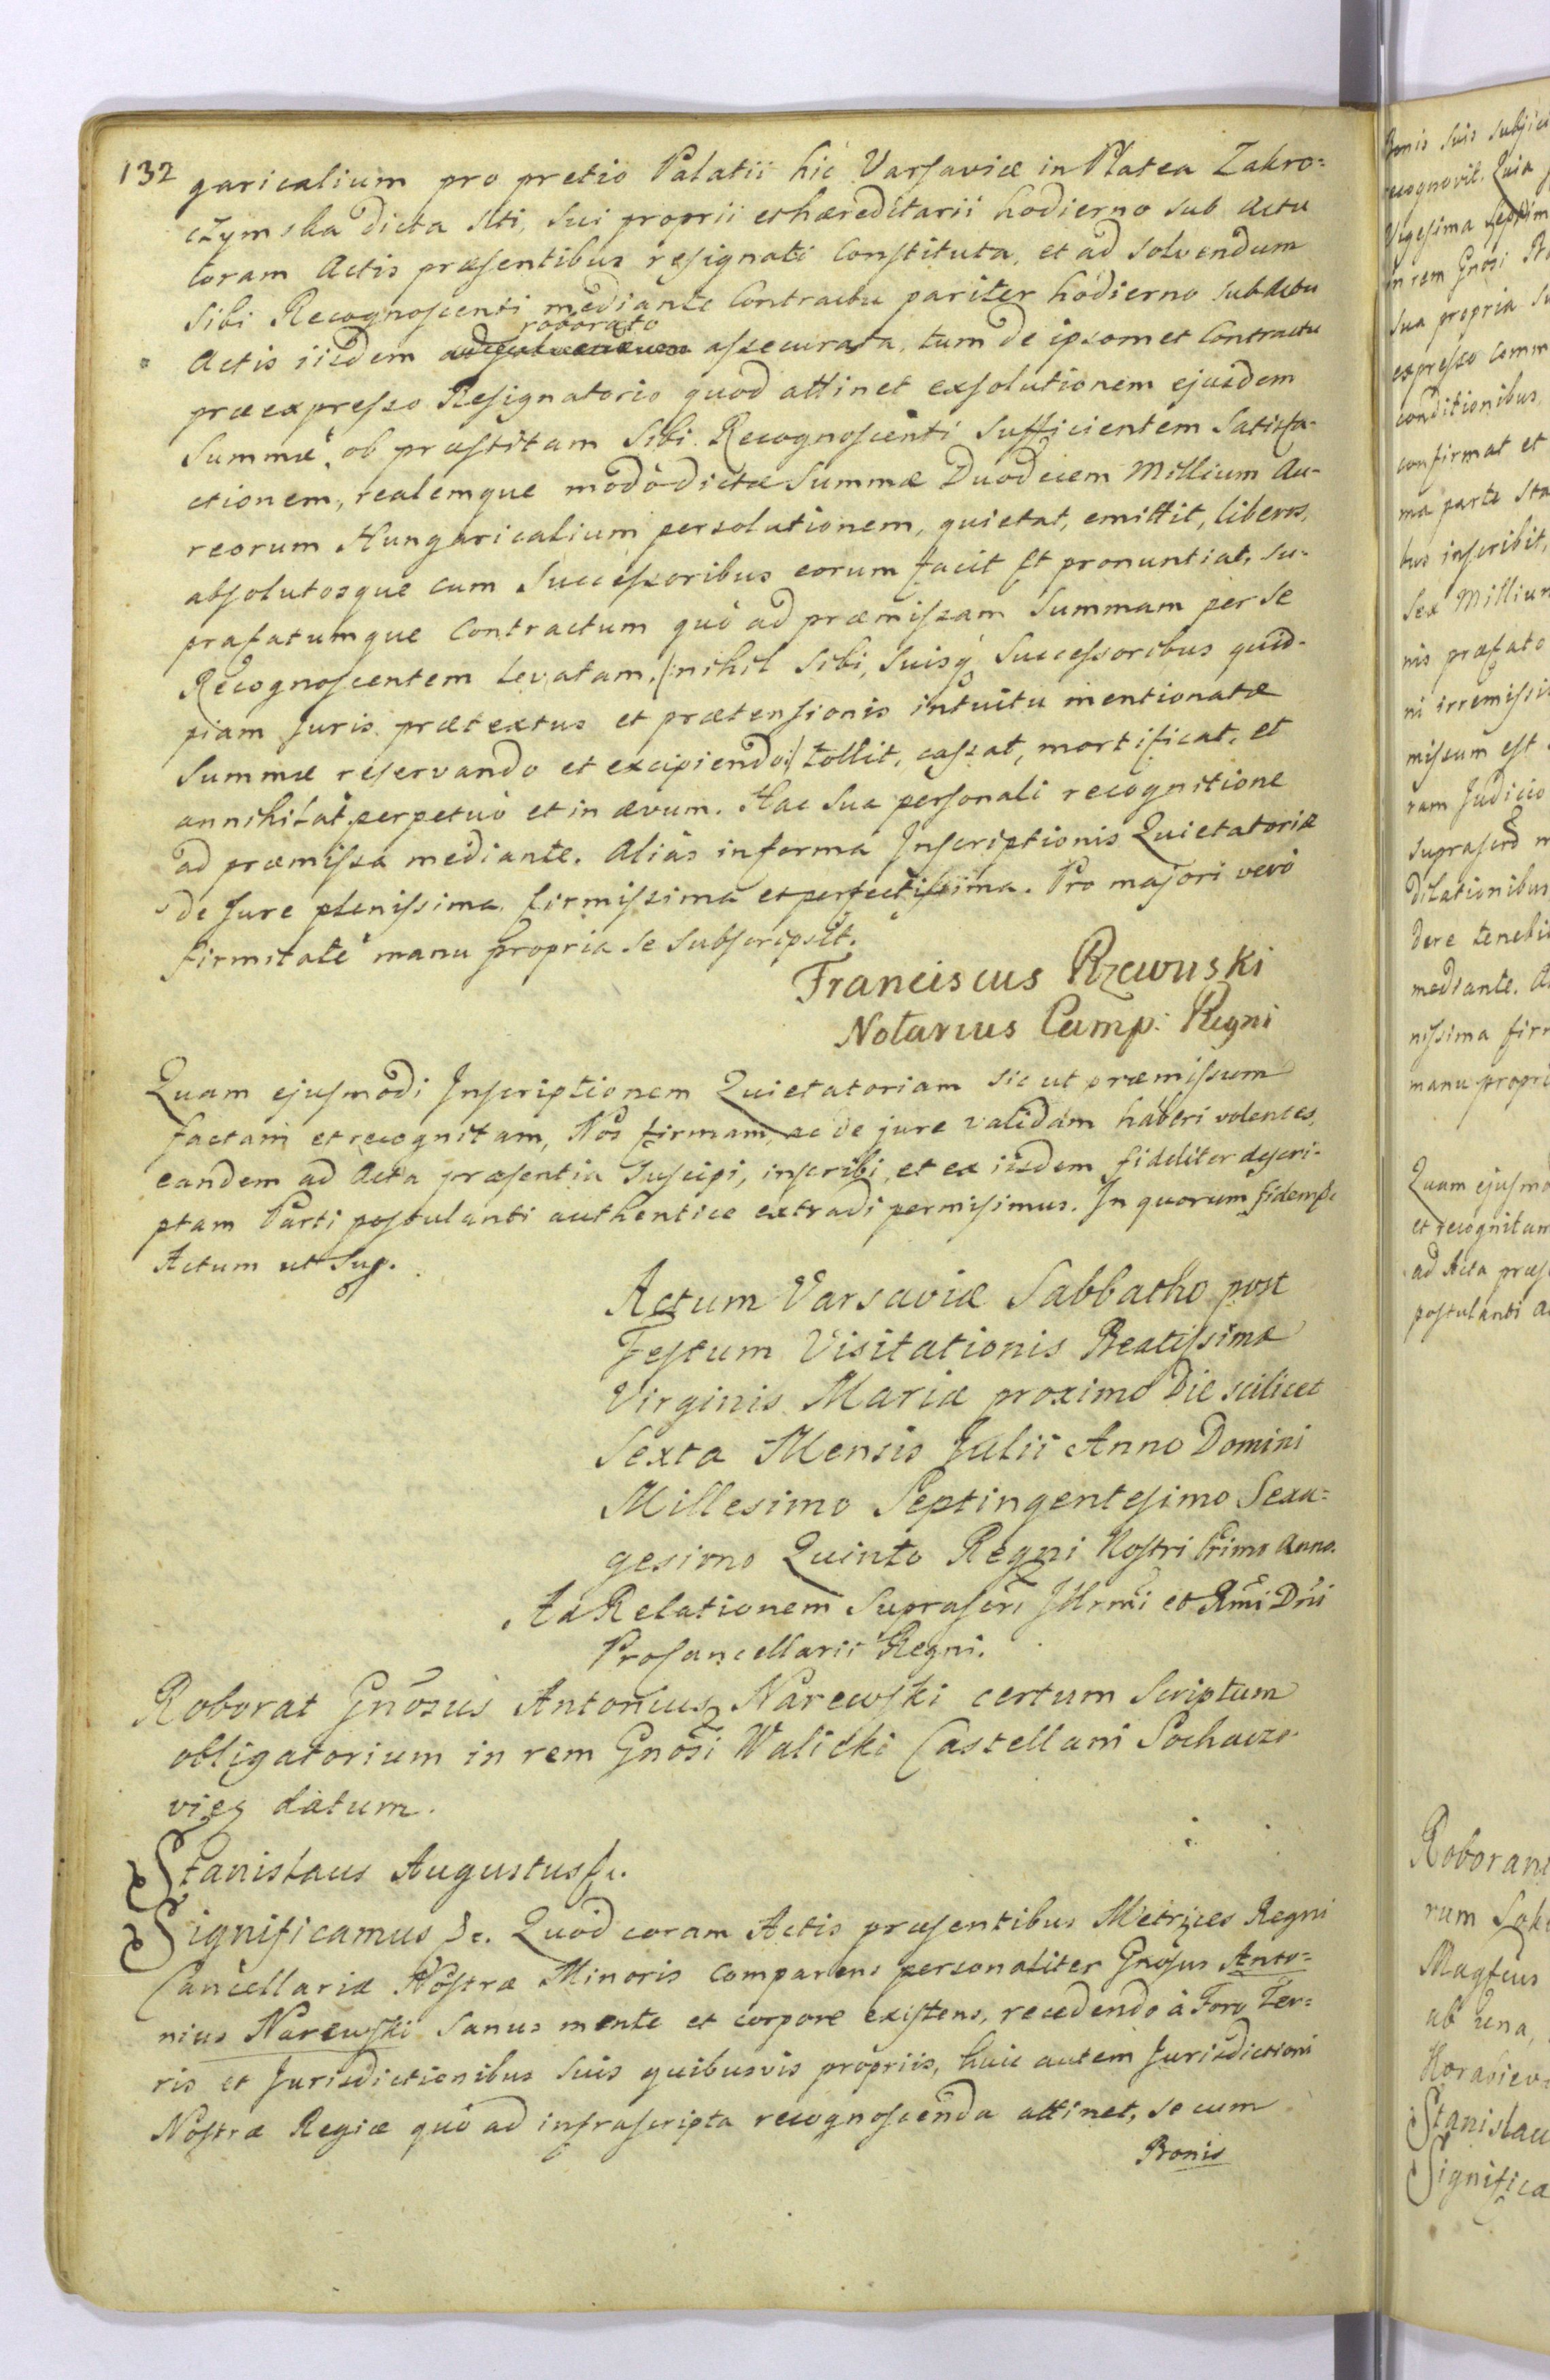 132 garicalium pro pretio Palatii hic Varsaviæ in Platea Zakro=
czymska dicta siti, sui proprii et hæreditarii hodierno sub actu
coram Actis præsentibus resignati Constituta, et ad solvendum
sibi Recognoscenti mediante Contractu pariter hodierno sub actu
roborato
Actis iisdem assecurata, tum de ipsomet Contractu
præexpresso Resignatorio quod attinet exsolutionem ejusdem
Summæ, ob præstitam sibi Recognoscenti sufficientem satisfa-
ctionem, realemque modò dictæ Summæ Duodecem Millium Au-
reorum Hungaricalium persolutionem, quietat, emittit, liberos,
absolutosque cum Successoribus eorum facit et pronuntiat, su-
prafatumque Contractum quò ad præmissam Summam per se
Recognoscentem levatam, (:nihil sibi, suisq́ Successoribus quid-
piam Juris prætextus et prætensionis intuitu mentionatæ
Summæ reservando et excipiendo:) tollit, cassat, mortificat, et
annihilat, perpetuò et in ævum. Hac sua personali recognitione
ad præmissa mediante. Aliàs in forma Inscriptionis Quietatoriæ
de Jure plenissima, firmissima et perfectissima. Pro majori verò
firmitate manu propria se subscripsit.
Franciscus Rzewuski
Notarius Camp: Regni
Quam ejusmodi Inscriptionem Quietatoriam sic ut præmissum
factam et recognitam, Nos firmam, ac de jure validam haberi volentes,
eandem ad Acta præsentia suscipi, inscribi, et ex iisdem fideliter descri-
ptam Parti postulanti authentice extradi permisimus. In quorum fidem &c
Actum ut Sup.
Actum Varsaviæ Sabbatho post
Festum Visitationis Beatissimæ
Virginis Mariæ proximo Die scilicet
Sexta Mensis Julii Anno Domini
Millesimo Septingentesimo Sexa=
gesimo Quinto Regni Nostri Primo Anno.
Ad Relationem Suprascri Illrmi et Rmi Dni
Procancellarii Regni.
Roborat Gnosus Antonius Narewski certum Scriptum
obligatorium in rem Gnosi Walicki Castellani Sochacze
vieñ datum.
Stanislaus Augustus &c.
Significamus &c. Quod coram Actis præsentibus Metrices Regni
Cancellariæ Nostræ Minoris comparens personaliter Gnosus Anto=
nius Narewski sanus mente et corpore existens, recedendo à Foro Ter=
ris et Jurisdictionibus suis quibusvis propriis, huic autem Jurisdictioni
Nostræ Regiæ quò ad infrascripta recognoscenda attinet, se cum
Bonis
Bonis suis subjici
recognovit. Quia
Vigesima septim
in rem Gnosi
sua propria
expresso comm
conditionibus,
confirmat et
ma parte sta
bus inscribit,
Sex Millium
nis præfato
ni irremissi
missum est
ram Judicio
Dilationibus
dere tenebi
mediante. A
nissima fir
manu propri
Quam ejusmo
et recognitam
ad Acta præs
postulanti a
Roboran
Magfcus
ab una,
Stanislau
Significa